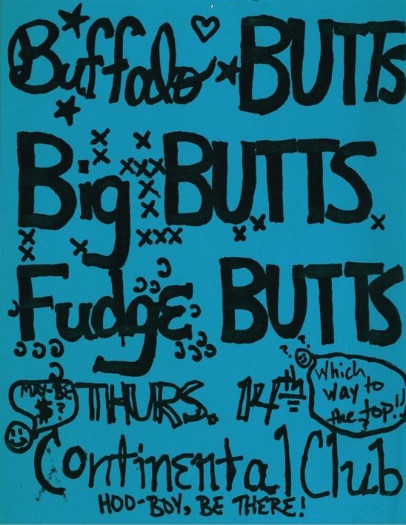 Buffalo BUTTS
Big BUTTS
Fudge BUTTS
MAY-BE
$?
THURS. 14th
Which
way to
the top!!
Continental Club
HOO-BOY, BE THERE!